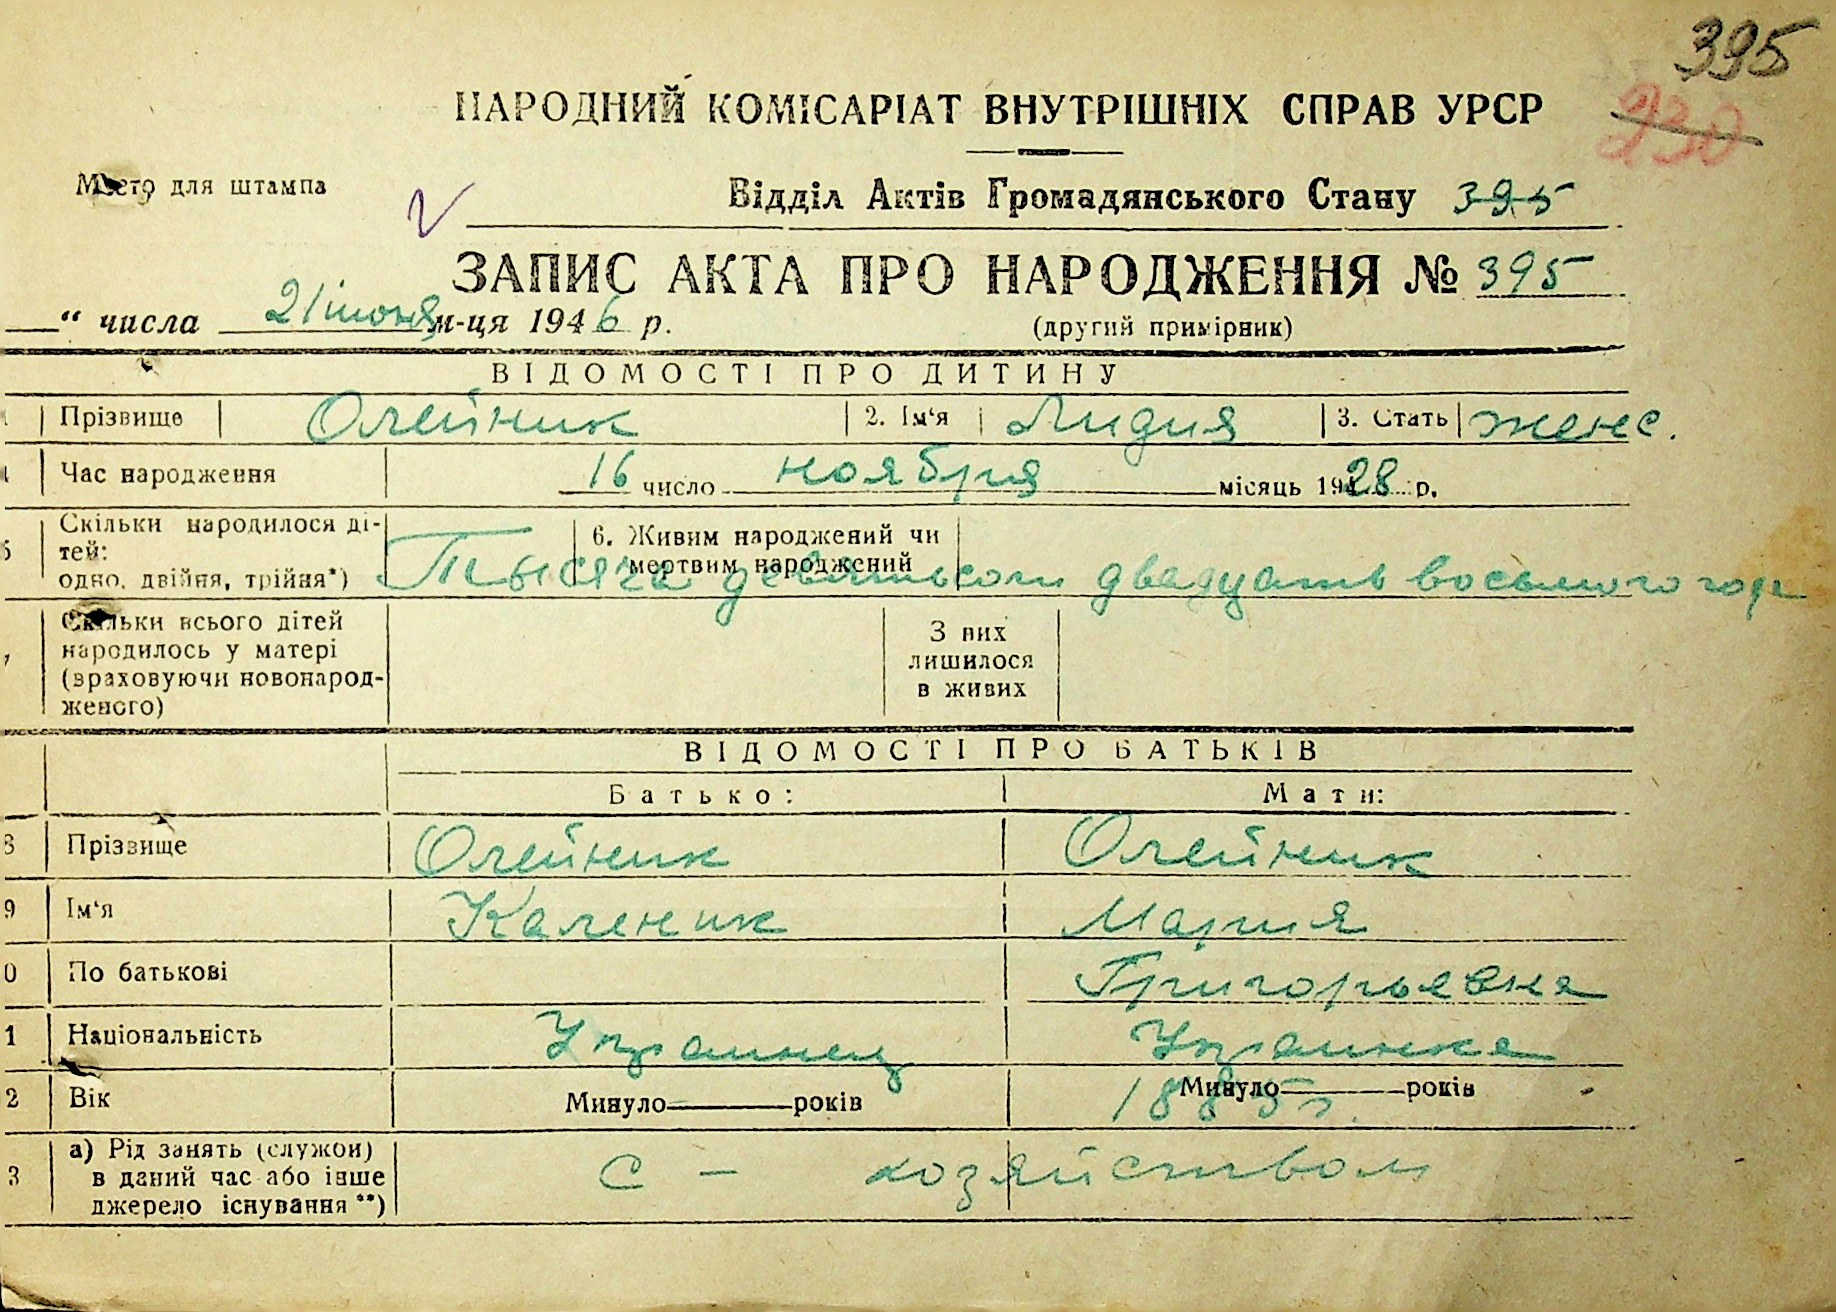 395
230
НАРОДНИЙ КОМІСАРІАТ ВНУТРІШНІХ СПРАВ УРСР
Место для штампа
Відділ Актів Громадянського Стану 395
ЗАПИС АКТА ПРО НАРОДЖЕННЯ № 395
“ числа 21 июня м-ця 1946 р. (другий примірник)
ВІДОМОСТІ ПРО ДИТИНУ
Прізвище Олейник 2. Ім‘я Лидия 3. Стать женс.
Час народження 16 число ноября місяць 1928 р.
Скільки народилося ді-
тей:
одно, двійня, трійня*)
6. Живим народжений чи
мертвим народжений
Тысяча девятьсот двадцать восьмого года
Скільки всього дітей
народилось у матері
(враховуючи новонарод-
женого)
З них
лишилося
в живих
ВІДОМОСТІ ПРО БАТЬКІВ
Батько: Мати:
8 Прізвище Олейник Олейник
9 Ім‘я Каленик Мария
0 По батькові Григорьевна
1 Національність Украинец Украинка
2 Вік Минуло років Минуло років
1885 г.
3 а) Рід занять (служби)
в даний час або інше
джерело існування **)
С – хозяйством